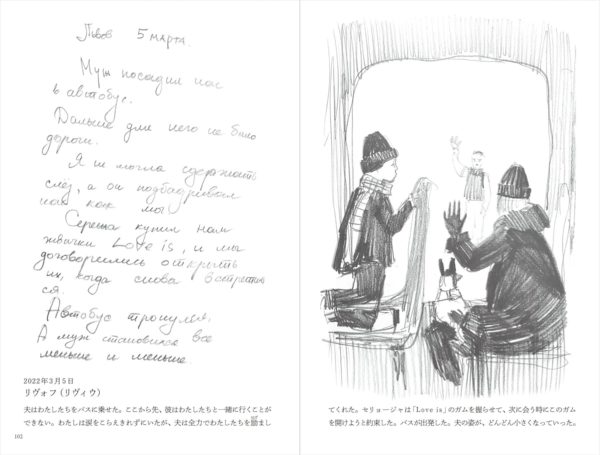 Львов 5 марта.
Муж посадил нас
в автобус.
Дальше для него не было
дороги.
Я не могла сдержать
слёз, а он подбадривал
нас как мог
Сережа купил нам
жвачки Love is, и мы
договорились открыть
их, когда снова встретим
ся.
Автобус тронулся,
А муж становился все
меньше и меньше.
2022年3月5日
リヴォフ（リヴィウ）
夫はわたしたちをバスに乗せた。ここから先、彼はわたしたちと一緒に行くことが
できない。わたしは涙をこらえきれずにいたが、夫は全力でわたしたちを励まし
102
てくれた。セリョージャは「Love is」のガムを握らせて、次に会う時にこのガム
を開けようと約束した。バスが出発した。夫の姿が、どんどん小さくなっていった。